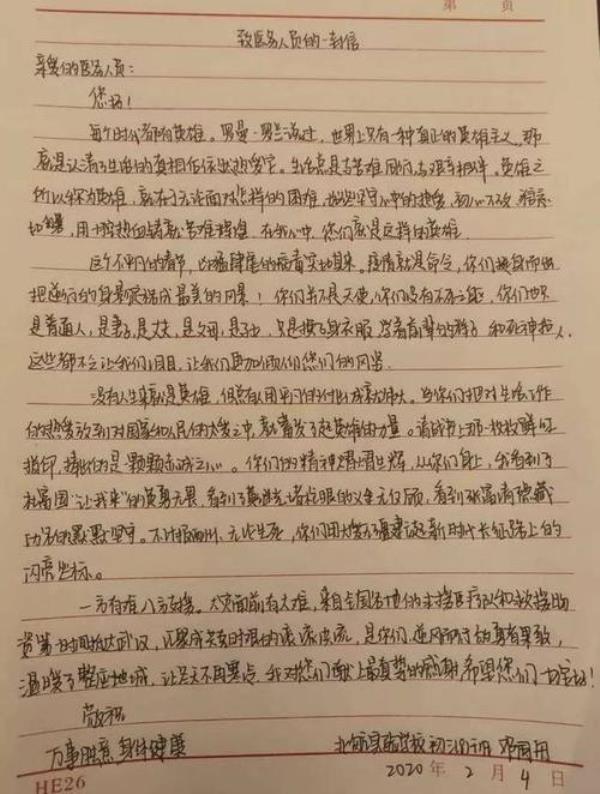 第 页
致医务人员的一封信
亲爱的医务人员：
您好！
每个时代都有英雄。罗曼·罗兰说过，世界上只有一种真正的英雄主义，那
就是认清了生活的真相后依然热爱它。生活总是与苦难同行与艰辛相伴。英雄之
所以称为英雄，就在于无论面对怎样的困难，都坚守心中的热爱，初心不改，
用一腔热血铸就苦难辉煌，在我心中，您们就是这样的英雄。
这个不平凡的春节，病毒突如其来。疫情就是命令，你们挺身而出
把逆行的身影定格成最美的风景！你们并不是天使，你们没有不死之能，你们也只
是普通人，是妻子，是丈夫，是父母，是子女，只是换了身衣服，学着前辈的样子，和死神抢人，
这些都不会让我们，让我们更加你们的风景。
没有人生来就是英雄，但总有人用平凡的付出成就伟大。当你们把对生活工作
的热爱放到对国家和人民的大爱之中，就蓄发了英雄的力量。请战书上那一枚枚鲜红
指印，捧出的是一颗颗赤诚之心。你们的精神熠熠生辉，从你们身上，我看到了
杜富国“让我来”的英勇无畏，看到了先烈的义无反顾，看到张富清隐藏
功名的默默坚守。不计报酬，无论生死，你们用大爱无疆筑起新时代长征路上的
闪亮坐标。
一方有难八方支援。大灾面前有大难，来自全国各地的支援医疗队和救援物
资第一时间抵达武汉，汇聚成爱的滚滚洪流，是你们，逆风而行的勇者果敢，
温暖了整座城，让冬天不再寒冷，我对您们献上最真挚的感谢，希望您们一切安好！
敬祝
万事胜意 身体健康
北师实验学校初三
2020 年 2 月 4 日
HE26